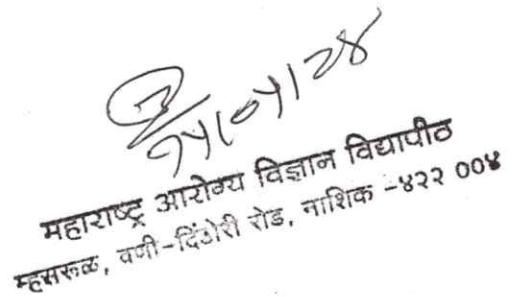 महाराष्ट्र आरोग्य विज्ञान विद्यापीठ
म्हसरूळ, वणी-दिंडोरी रोड, नाशिक -४२२ ००४